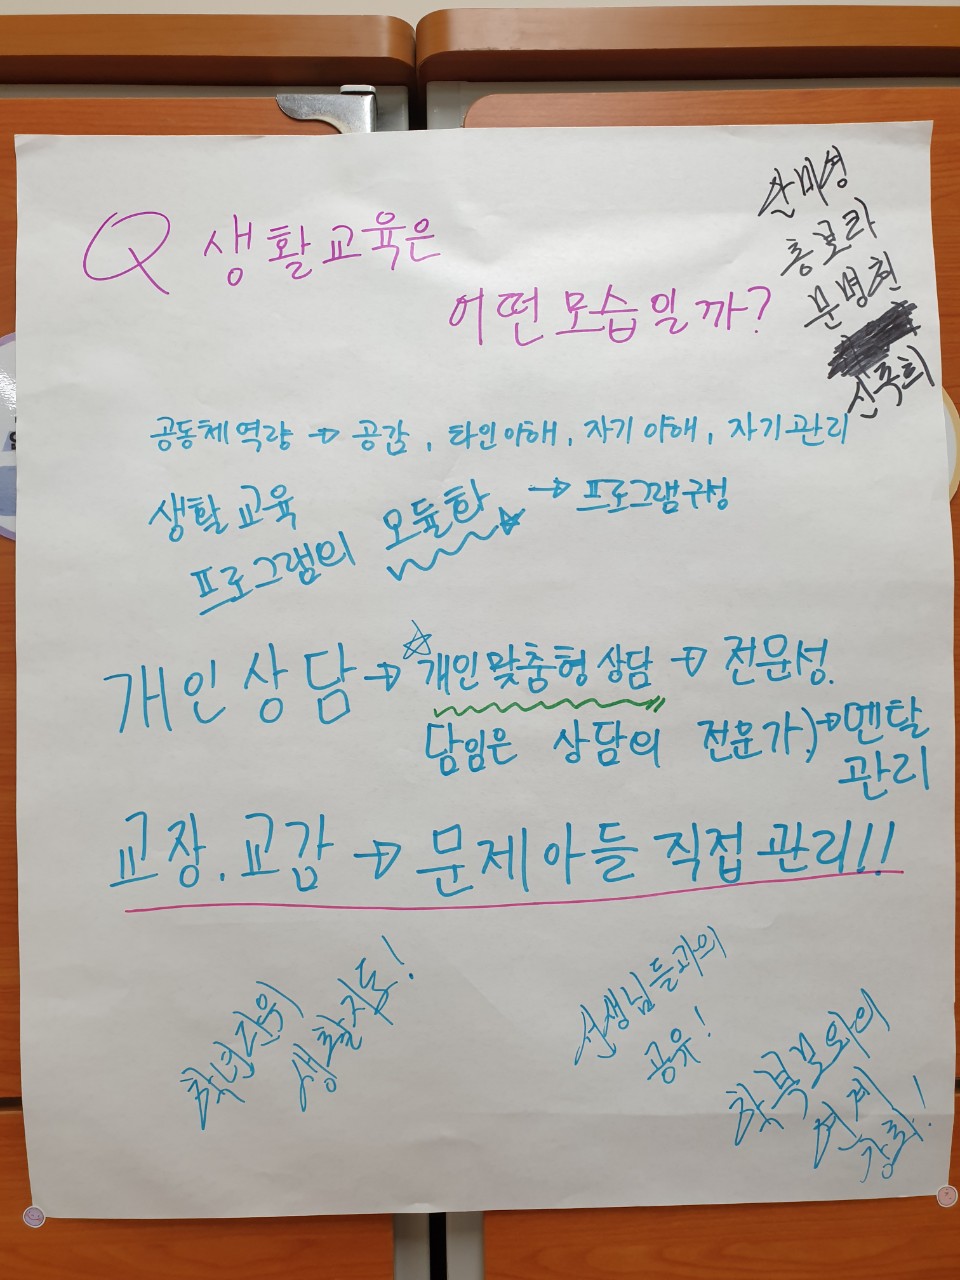 Q 생활교육은
어떤 모습일까?
산미성
홍보라
문병현
신주희
공동체역량 → 공감, 타인이해, 자기이해, 자기관리
생활교육
프로그램의 모듈화 → 프로그램구성
개인상담 → ☆개인맞춤형상담 → 전문성.
담임은 상담의 전문가.) → 멘탈
관리
교장.교감 → 문제아들 직접관리!!
학년단위
생활지도!
선생님들과의
공유!
학부모와의
연계
강화!